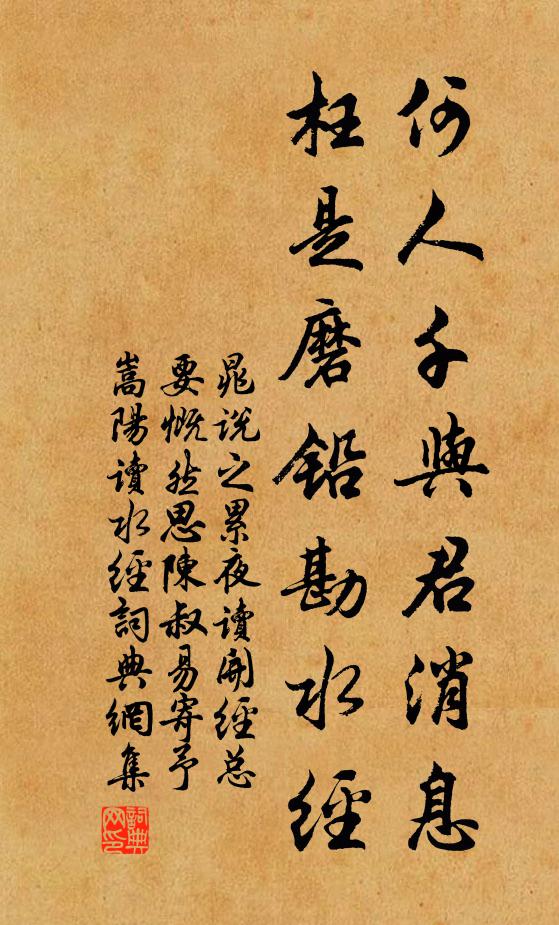 何人千與君消息
枉是磨鉛勘水經
晁說之累夜讀開經总
要慨然思陳叔易寄予
嵩陽讀水經詞典網集
詞典網印